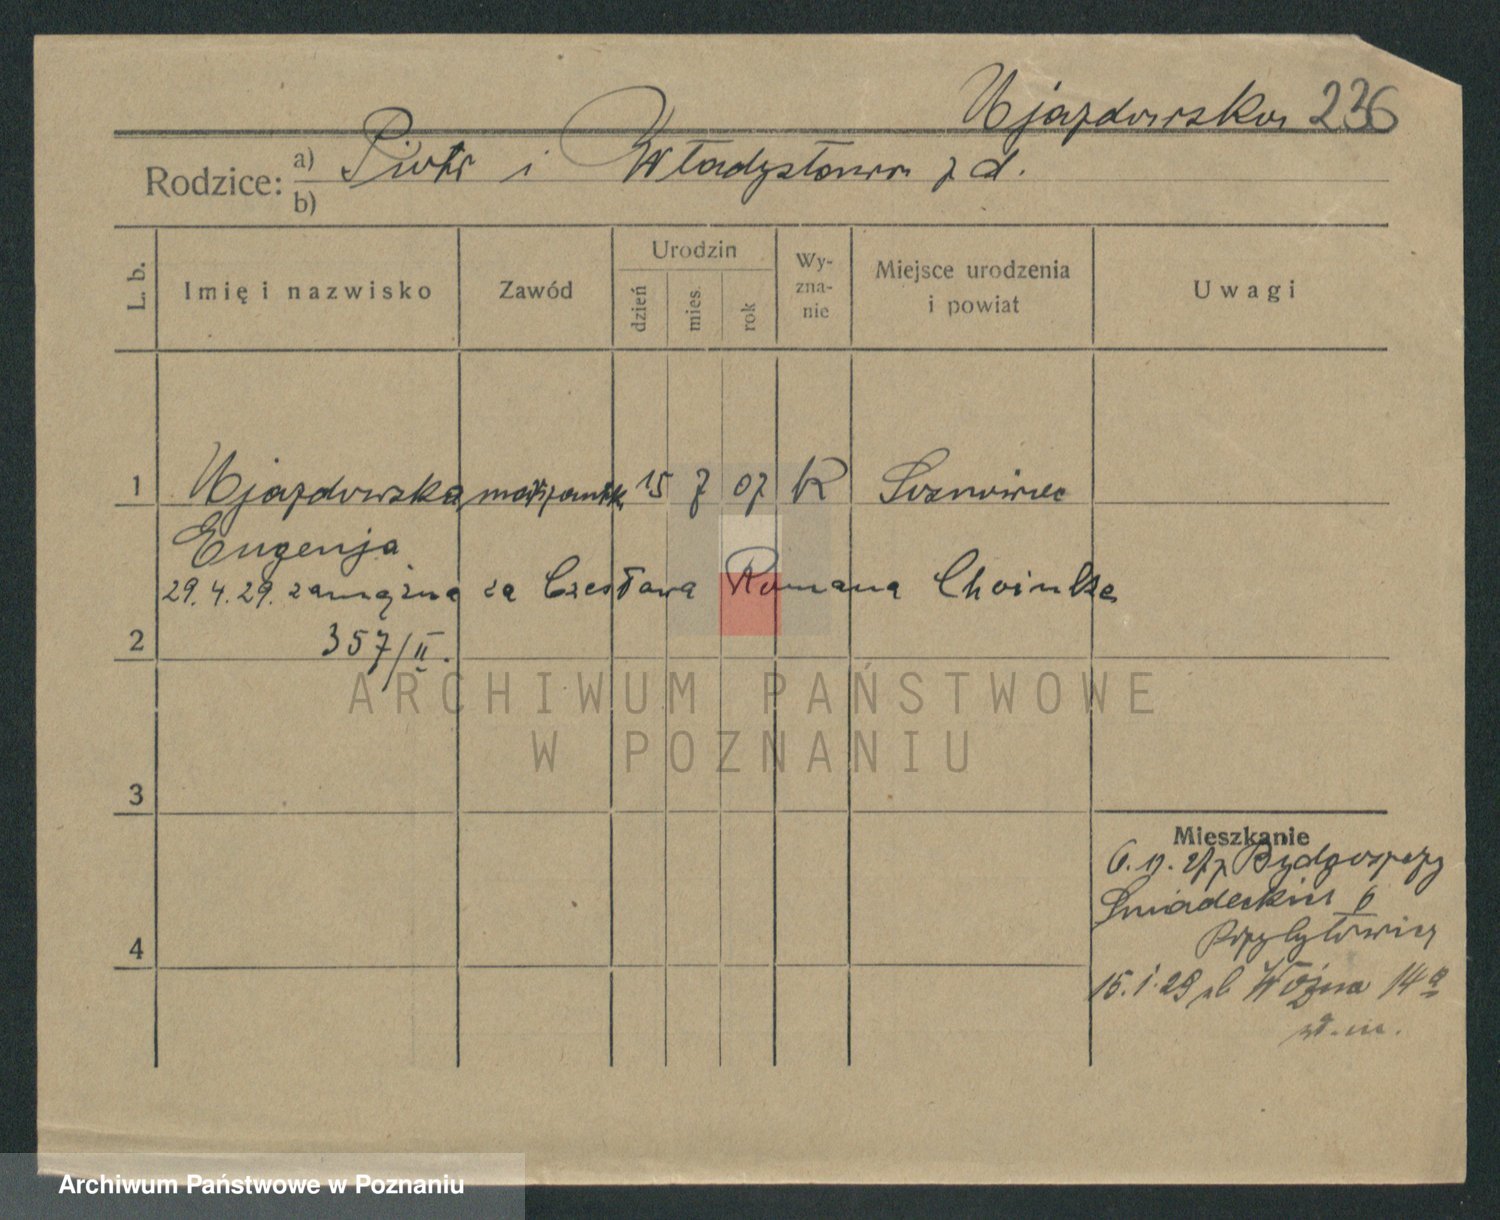 Ujazdowska 236
Rodzice: a) Piotr i Władysława z d.
b)
L. b.
Imię i nazwisko
Zawód
Urodzin
dzień
mies.
rok
Wy-
zna-
nie
Miejsce urodzenia
i powiat
Uwagi
1 Ujazdowska 15 7 07 K Sosnowiec
Eugenja
29. 4. 29. zamężna za Czesława Romana Choinka
2 357/II.
ARCHIWUM PAŃSTWOWE
W POZNANIU
3
Mieszkanie
6. 12. 27 z Bydgoszczy
Śniadeckich 6
4
15. 1. 29 Woźna 14a
Archiwum Państwowe w Poznaniu